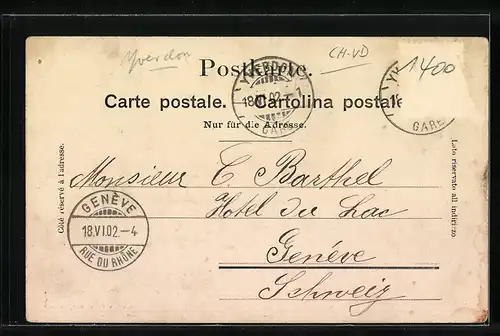 Yverdon
CH-VD
1400
Postkarte.
Carte postale. Cartolina postale
Nur für die Adresse.
YVERDON
18.VI.02.–1
GARE
GARE
Côté réservé à l'adresse.
Lato riservato all indirizzo
Monsieur C. Barthel
Hotel du Lac
Genéve
Schweiz
GENÈVE
18.VI.02.–4
RUE DU RHÔNE